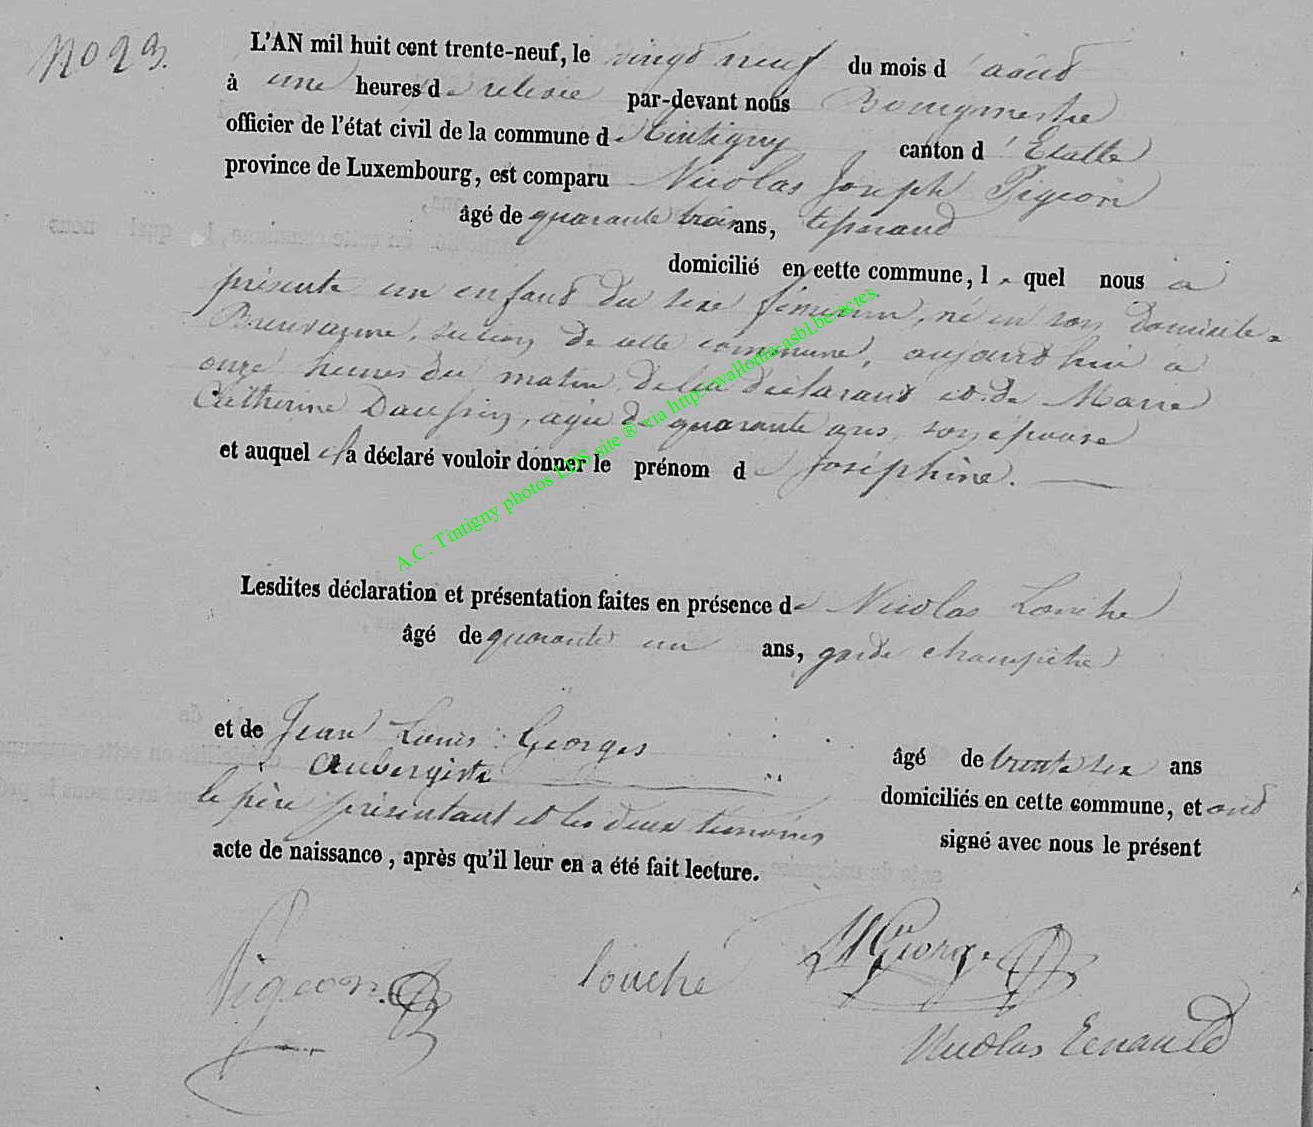 N° 23.
L'AN mil huit cent trente-neuf, le vingt neuf du mois d'août
à une heures de relevée par-devant nous Bourgmestre
officier de l'état civil de la commune de Tintigny canton d'Etalle
province de Luxembourg, est comparu Nicolas Joseph Pigeon
âgé de quarante trois ans, tisserand
domicilié en cette commune, le quel nous a
présenté un enfant du sexe féminin, né en son domicile à
Breuvanne, section de cette commune, aujourd'hui à
onze heures du matin, de lui déclarant et de Marie
Catherine Daussin, agée de quarante ans, son épouse
et auquel il a déclaré vouloir donner le prénom de Joséphine.
Lesdites déclaration et présentation faites en présence de Nicolas Louche
âgé de quarante un ans, garde champêtre
et de Jean Louis Georges âgé de trente six ans
Aubergiste domiciliés en cette commune, et ont
le père présentant et les deux témoins signé avec nous le présent
acte de naissance, après qu'il leur en a été fait lecture.
Pigeon louche Georges
Nicolas
A.C. Tintigny photos LDS site ® via http://wallonia-asbl.be/actes.